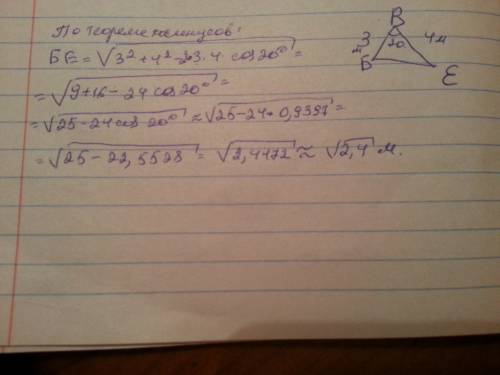 По теореме косинусов:
БЕ = √3² + 4² - 2·3·4 cos 20° =
= √9+16 - 24 cos 20° =
= √25 - 24 cos 20° ≈ √25 - 24 · 0,9397 =
= √25 - 22,5528 = √2,4472 ≈ √2,4 м.
В
3 м 20 4 м
Б Е